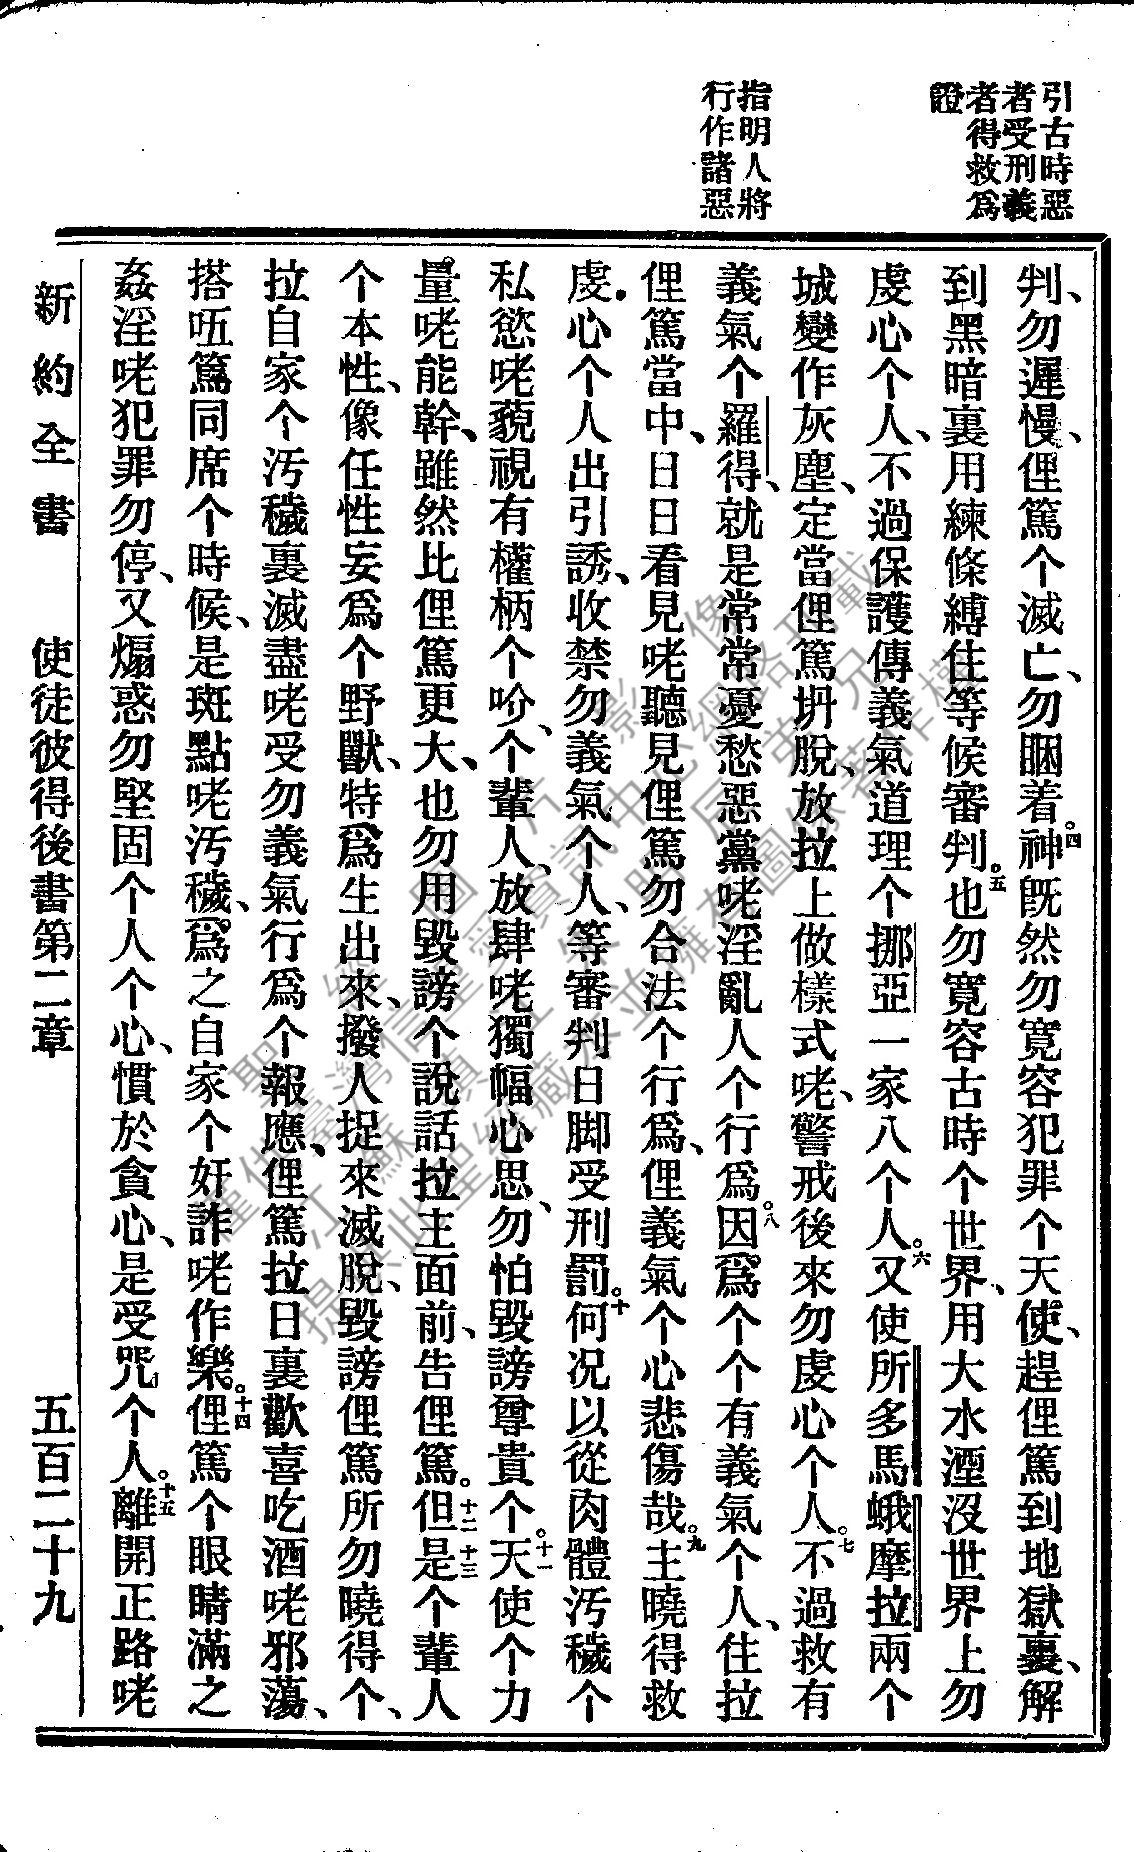 引古時惡
者受刑義
者得救爲
證
指明人將
行作諸惡
判、勿遲慢、俚篤个滅亡、勿睏着。四神旣然勿寬容犯罪个天使、趕俚篤到地獄裏、解
到黑暗裏用練條縛住等候審判。五也勿寬容古時个世界、用大水湮沒世界上勿
虔心个人、不過保護傳義氣道理个挪亞一家八个人。六又使所多馬蛾摩拉兩个
城變作灰塵、定當俚篤坍脫、放拉上做樣式咾、警戒後來勿虔心个人。七不過救有
義氣个羅得、就是常常憂愁惡黨咾淫亂人个行爲。八因爲个个有義氣个人、住拉
俚篤當中、日日看見咾聽見俚篤勿合法个行爲、俚義氣个心悲傷哉。九主曉得救
虔心个人出引誘、收禁勿義氣个人、等審判日脚受刑罰。十何况以從肉體汚穢个
私慾咾藐視有權柄个吤、个輩人、放肆咾獨幅心思、勿怕毀謗尊貴个。十一天使个力
量咾能幹、雖然比俚篤更大、也勿用毀謗个說話拉主面前、告俚篤。十二十三但是个輩人
个本性、像任性妄爲个野獸、特爲生出來、撥人捉來滅脫、毀謗俚篤所勿曉得个、
拉自家个汚穢裏滅盡咾受勿義氣行爲个報應、俚篤拉日裏歡喜吃酒咾邪蕩、
搭㕶篤同席个時候、是斑點咾汚穢、爲之自家个奸詐咾作樂。十四俚篤个眼睛滿之
姦淫咾犯罪勿停、又煽惑勿堅固个人个心、慣於貪心、是受咒个人。十五離開正路咾
新約全書　使徒彼得後書第二章　五百二十九